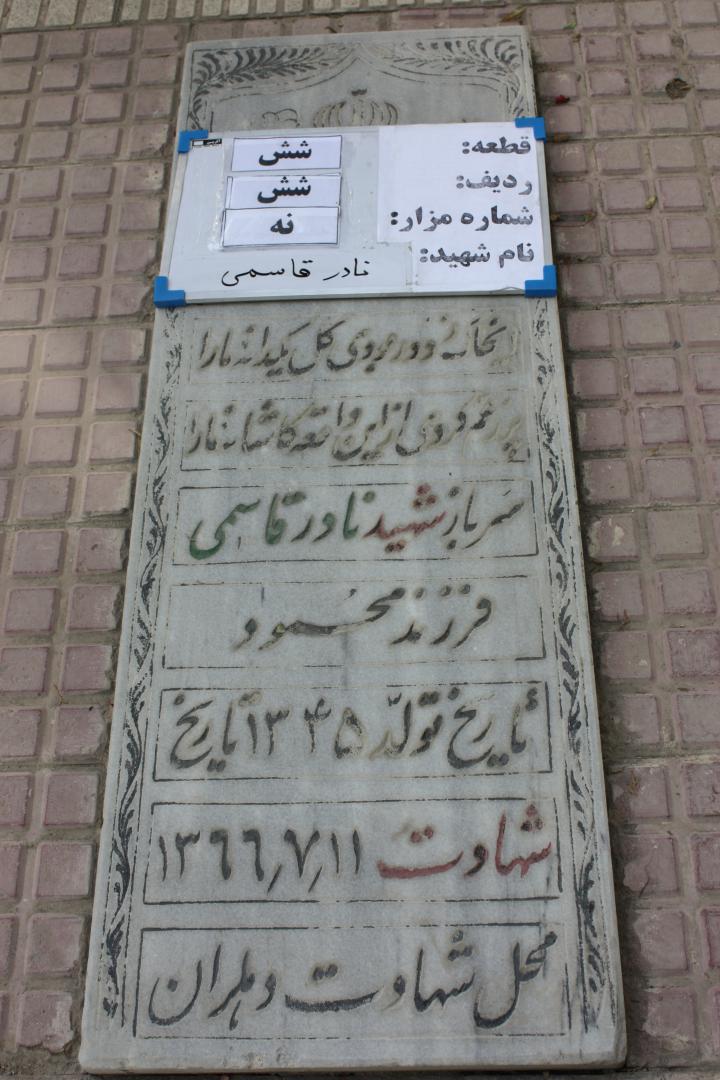 قطعه: شش
ردیف: شش
شماره مزار: نه
نام شهید: نادر قاسمی
ای خالق ودود ربودی گل یکدانه ما را
پر ز غم کردی از این واقعه کاشانه ما را
سرباز شهید نادر قاسمی
فرزند محمود
تاریخ تولّد ۱۳۴۵ تاریخ
شهادت ۱۳۶۶٫۷٫۱۱
محل شهادت دهلران